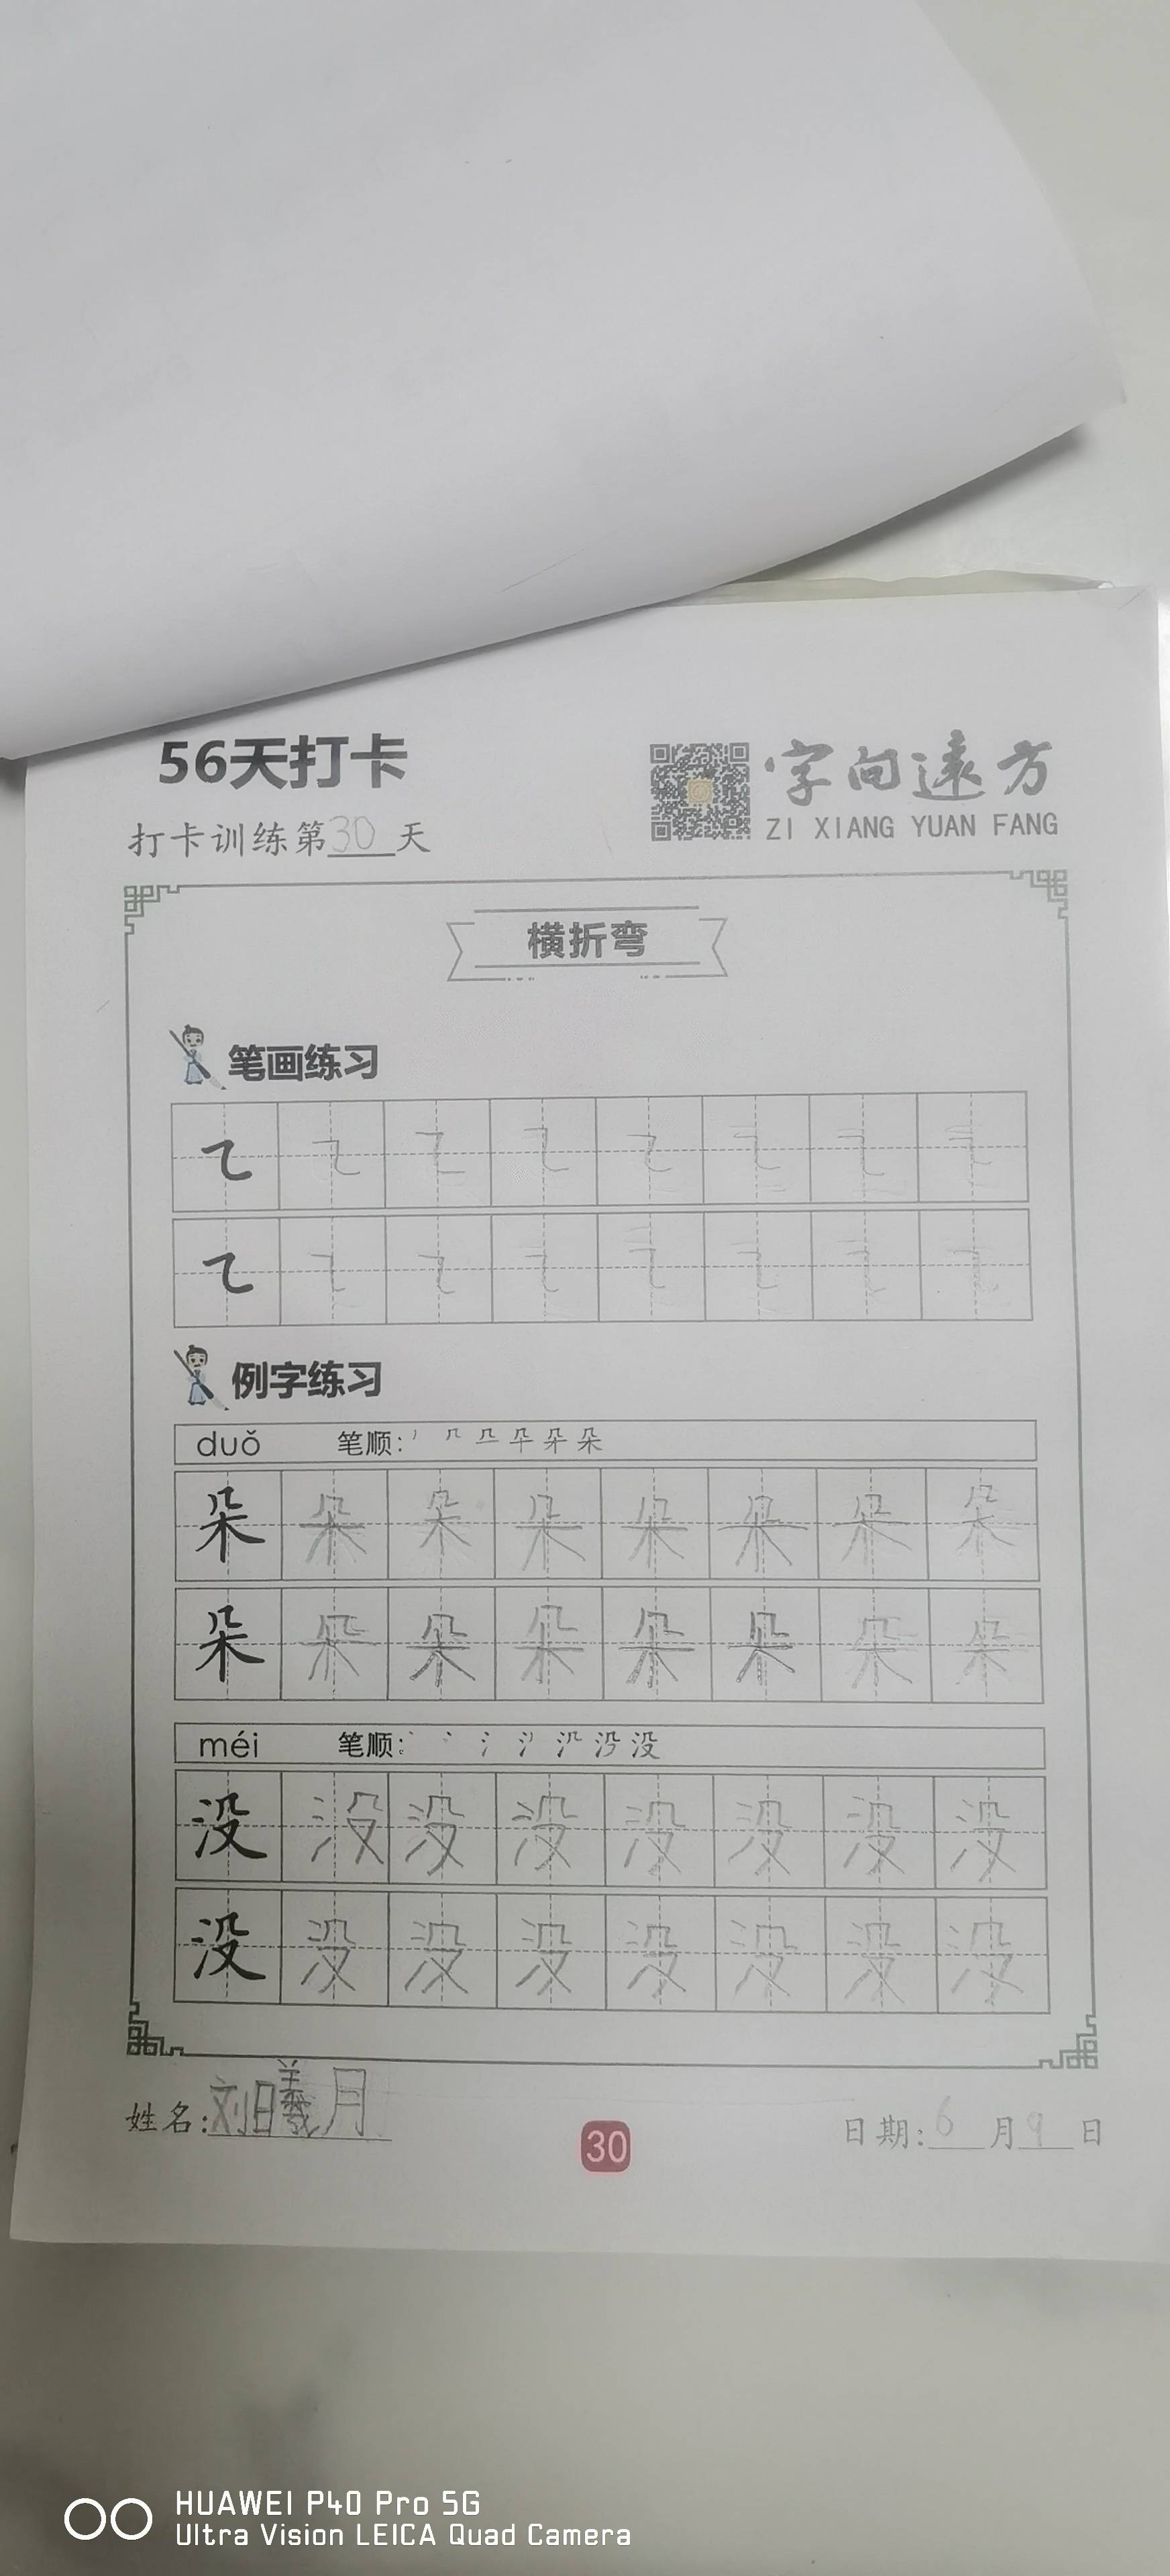 56天打卡
字向遠方
ZI XIANG YUAN FANG
打卡训练第30天
横折弯
笔画练习
例字练习
duǒ 笔顺:
朵 朵 朵 朵 朵 朵 朵 朵
朵 朵 朵 朵 朵 朵 朵 朵
méi 笔顺:
没 没 没 没 没 没 没 没
没 没 没 没 没 没 没 没
姓名:刘曦月
30
日期:6月9日
HUAWEI P40 Pro 5G
Ultra Vision LEICA Quad Camera